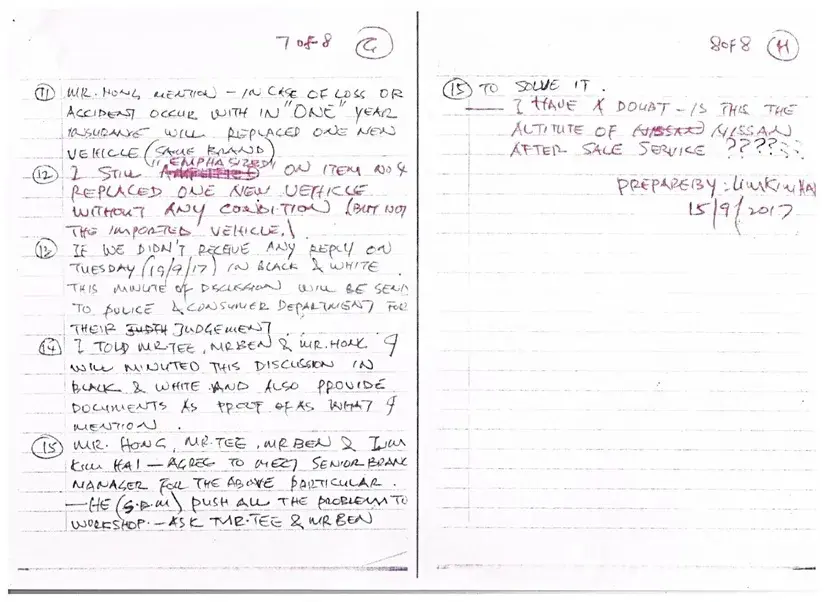 7 of 8 G
11 MR. HONG MENTION - IN CASE OF LOSS OR
ACCIDENT OCCUR WITH IN "ONE" YEAR
INSURANCE WILL REPLACED ONE NEW
VEHICLE (SAME BRAND)
"EMPHASIZED"
12 I STILL ON ITEM NO 4
REPLACED ONE NEW VEHICLE
WITHOUT ANY CONDITION (BUT NOT
THE IMPORTED VEHICLE.)
13 IF WE DIDN'T RECEIVE ANY REPLY ON
TUESDAY (19/9/17) IN BLACK & WHITE
THIS MINUTE OF DISCUSSION WILL BE SEND
TO POLICE & CONSUMER DEPARTMENT FOR
THEIR JUDGEMENT.
14 I TOLD MR TEE, MR BEN & MR. HONG I
WILL MINUTED THIS DISCUSSION IN
BLACK & WHITE AND ALSO PROVIDE
DOCUMENTS AS PROOF OF AS WHAT I
MENTION.
15 MR. HONG, MR. TEE, MR BEN & LIM
KIM HAI - AGREE TO MEET SENIOR BRANC
MANAGER FOR THE ABOVE PARTICULAR.
- HE (S.B.M) PUSH ALL THE PROBLEM TO
WORKSHOP. - ASK MR. TEE & MR BEN
8 OF 8 H
15 TO SOLVE IT.
- I HAVE A DOUBT - IS THIS THE
ALTITUTE OF NISSAN
AFTER SALE SERVICE ?????
PREPARE BY: LIM KIM HAI
15/9/2017